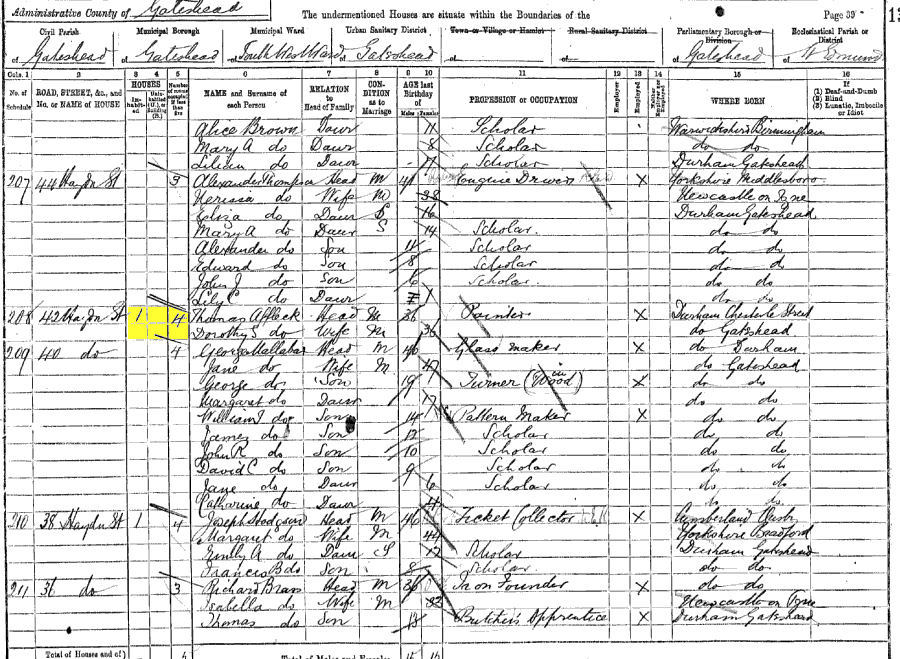 Administrative County of Gateshead
The undermentioned Houses are situate within the Boundaries of the
Page 39
13
Civil Parish
Municipal Borough
Municipal Ward
Urban Sanitary District
Town or Village or Hamlet
Rural Sanitary District
Parliamentary Borough or Division
Ecclesiastical Parish or District
of Gateshead
of Gateshead
of South West Ward
of Gateshead
of
of
of Gateshead
of St Edmund
Cols. 1 2 3 4 5 6 7 8 9 10 11 12 13 14 15 16
No. of Schedule
ROAD, STREET, &c., and No. or NAME of HOUSE
HOUSES
NAME and Surname of each Person
RELATION to Head of Family
CONDITION as to Marriage
AGE last Birthday of
Males Females
PROFESSION or OCCUPATION
Employer
Employed
WHERE BORN
If (1) Deaf-and-Dumb (2) Blind (3) Lunatic, Imbecile or Idiot
Alice Brown Daur 11 Scholar Warwickshire Birmingham
Mary A do Daur 8 Scholar do do
Lilian do Daur Scholar Durham Gateshead
207 44 Haydn St 3 Alexander Thompson Head M 41 Engine Driver X Yorkshire Middlesboro
Nerissa do Wife M 38 Newcastle on Tyne
Eliza do Daur S 16 Durham Gateshead
Mary A do Daur S 14 Scholar do do
Alexander do Son 11 Scholar do do
Edward do Son 8 Scholar do do
John J do Son 6 Scholar do do
Lily C do Daur do do
208 42 Haydn St 1 4 Thomas Affleck Head M 36 Painter X Durham Chester le Street
Dorothy S do Wife M 36 do Gateshead
209 40 do 4 George Mallabar Head M 46 Glass maker X do Durham
Jane do Wife M 47 do Gateshead
George do Son 19 Turner (in Wood) X do do
Margaret do Daur 17 do do
William J do Son 14 Pattern Maker X do do
James do Son 12 Scholar do do
John R do Son 10 Scholar do do
David C do Son 9 Scholar do do
Jane do Daur 6 Scholar do do
Catharine do Daur 4 do do
210 38 Haydn St 1 4 Joseph Hodgson Head M 46 Ticket Collector X Cumberland
Margaret do Wife M 44 Yorkshire Bradford
Emily A do Daur S 12 Scholar Durham Gateshead
Francis B do Son 8 Scholar do do
211 36 do 3 Richard Brass Head M 36 Iron Founder X do do
Isabella do Wife M 32 Newcastle on Tyne
Thomas do Son 13 Butcher's Apprentice X Durham Gateshead
Total of Houses and of
Total of Males and Females